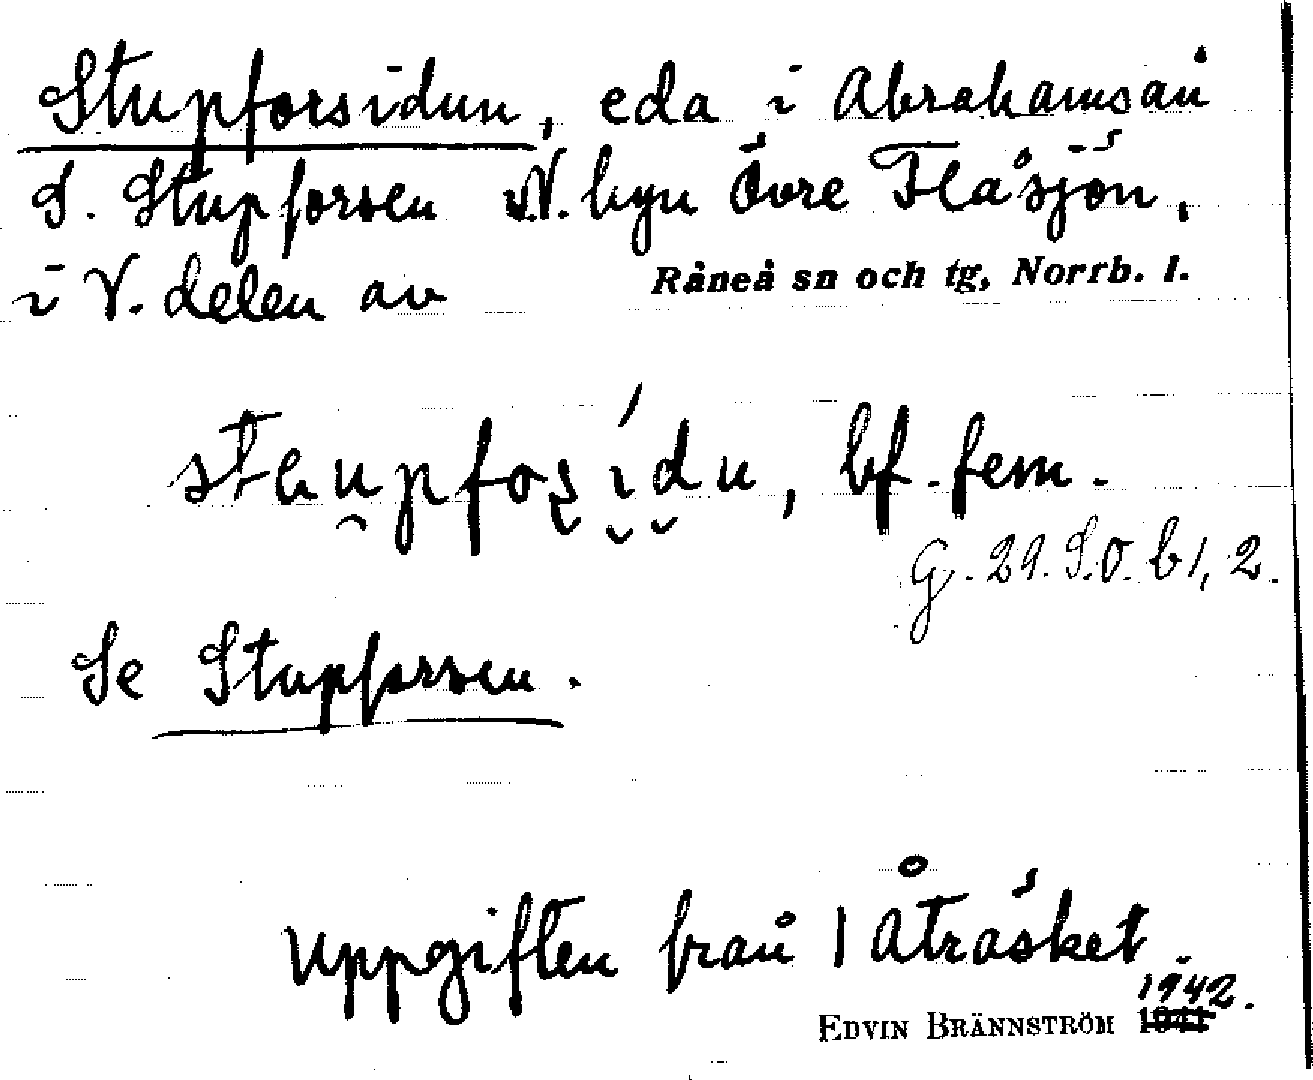 Stupforsidun, eda i Abrahamsån
S. Stupforsen N. byn Övre Flåsjön,
i V. delen av Råneå sn och tg, Norrb. l.
bf. fem.
G. 29. S.O. b1, 2.
Se Stupforsen.
Uppgiften från 1 Åträsket.
1942.
EDVIN BRÄNNSTRÖM 1941